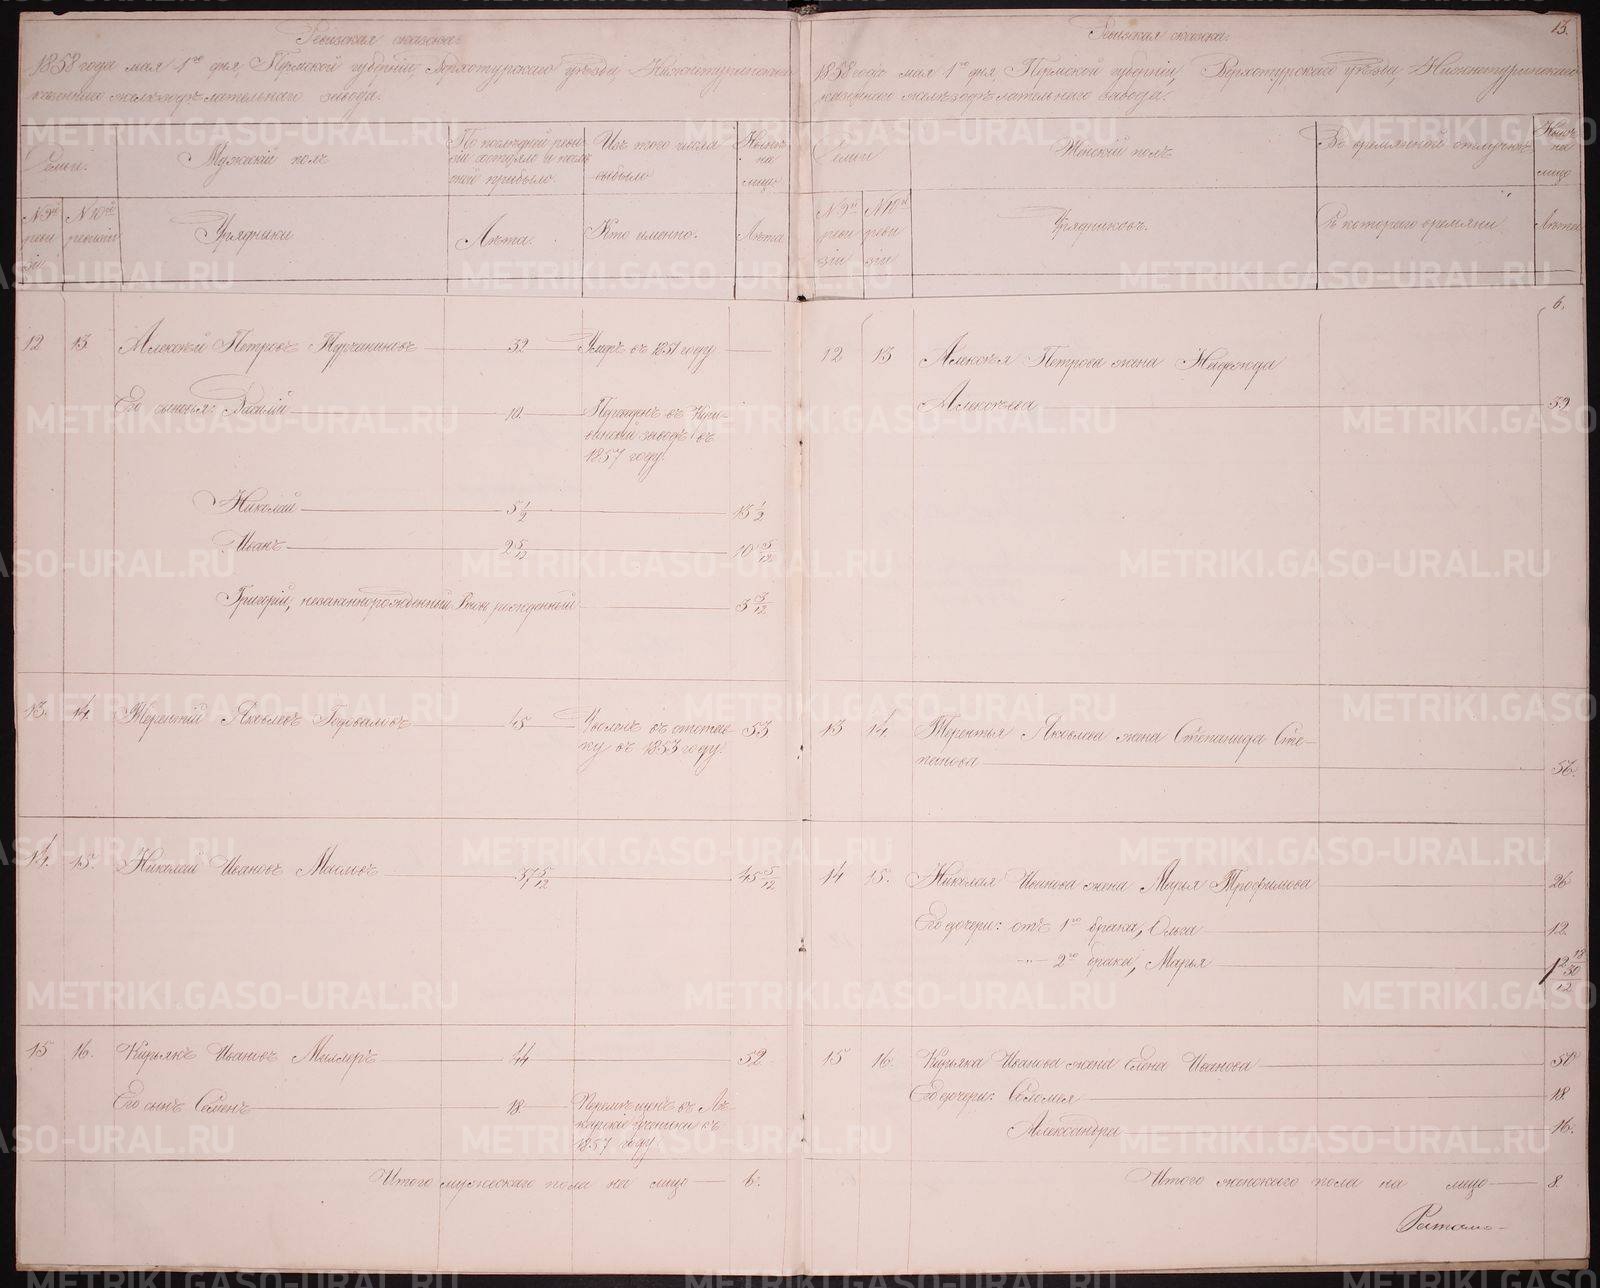 Ревизская сказка.
1858 года мая 1го дня, Пермской губернии, Верхотурскаго уезда, Нижнетуринскаго
казеннаго железоделательнаго завода.
Семьи.
Мужеский пол
По последней реви-
зии состояло и после
оной прибыло.
Изъ того числа
выбыло
Ныне
на
лицо
№ 9й
реви
зии
№ 10й
ревизии
Урядники
Лета.
Кто именно.
Лета
12 13 Алексей Петровъ Турчининовъ 32 Умеръ въ 1851 году
Его сыновья: Василий 10
завод въ
1857 году.
Николай 5 1/2 13 1/2
Иванъ 2 5/12 10 5/12
Григорий, незаконнорожденный Вновь рожденный 3 3/12
13. 14. Терентий Яковлевъ 45 Уволенъ въ отстав-
ку въ 1853 году. 53
14. 15. Николай Ивановъ 37 5/12 45 5/12
15 16. Кирьякъ Ивановъ 44 52.
Его сынъ Семенъ 18. Перемещенъ въ Ле-
карские ученики въ
1857 году
Итого мужескаго пола на лицо 6.
13.
Ревизская сказка.
1858 года мая 1го дня, Пермской губернии, Верхотурскаго уезда, Нижнетуринскаго
казеннаго железоделательнаго завода.
Семьи
Женский полъ
Во временной отлучке
Ныне
на
лицо
№ 9й
реви
зии
№ 10й
реви
зии
Урядниковъ.
Съ котораго времяни
Лета
6.
12 13 Алексея Петрова жена
Алексеева 39
13 14. Терентья Яковлева жена Степанида Сте-
панова 56.
14 15. Николая Иванова жена Марья Трофимова 26
Его дочери: отъ 1го брака, Ольга 12.
-"- 2го брака, Марья
15 16. Кирьяка Иванова жена Елена Иванова
Его дочери: Соломея 18.
Александра 16.
Итого женскаго пола на лицо 8.
METRIKI.GASO-URAL.RU